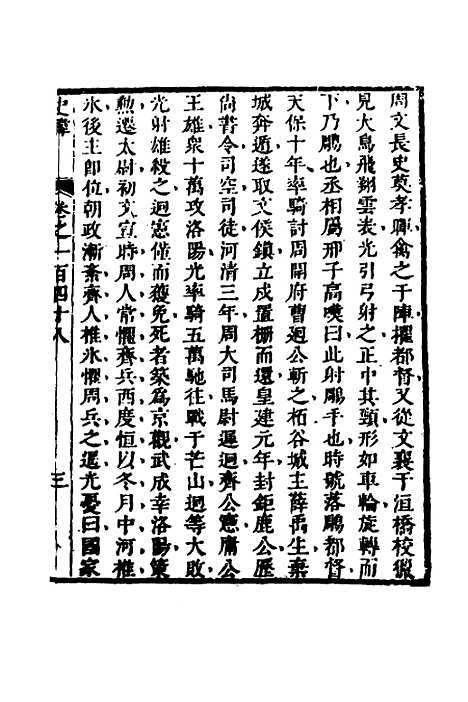 周文長史莫孝暉禽之于陣擢都督又從文襄于洹橋校獵
見大鳥飛翔雲表光引弓射之正中其頸形如車輪旋轉而
下乃鵰也丞相屬邢子高嘆曰此射鵰手也時號落鵰都督
天保十年率騎討周開府曹迴公斬之栢谷城主薛禹生棄
城奔遁遂取文侯鎮立戍置栅而還皇建元年封鉅鹿公歷
尚書令司空司徒河清三年周大司馬尉遲迴齊公憲庸公
王雄衆十萬攻洛陽光率騎五萬馳往戰于芒山迴等大敗
光射雄殺之迴憲僅而獲免死者築爲京觀武成幸洛陽策
勲遷太尉初文宣時周人常懼齊兵西度恒以冬月中河椎
氷後主即位朝政漸紊齊人椎氷懼周兵之逼光憂曰國家
史緯 卷之一百四十八 三